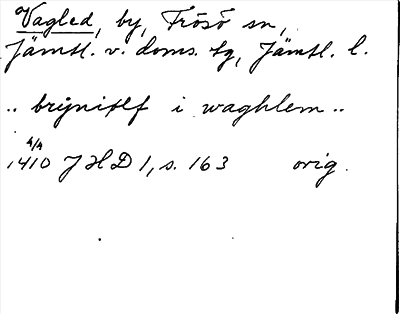 Vagled, by, Frösö sn,
Jämtl. v. doms. tg, Jämtl. l.
.. brijnitlf i waghlem ..
4/4
1410 JHD 1, s. 163 orig.